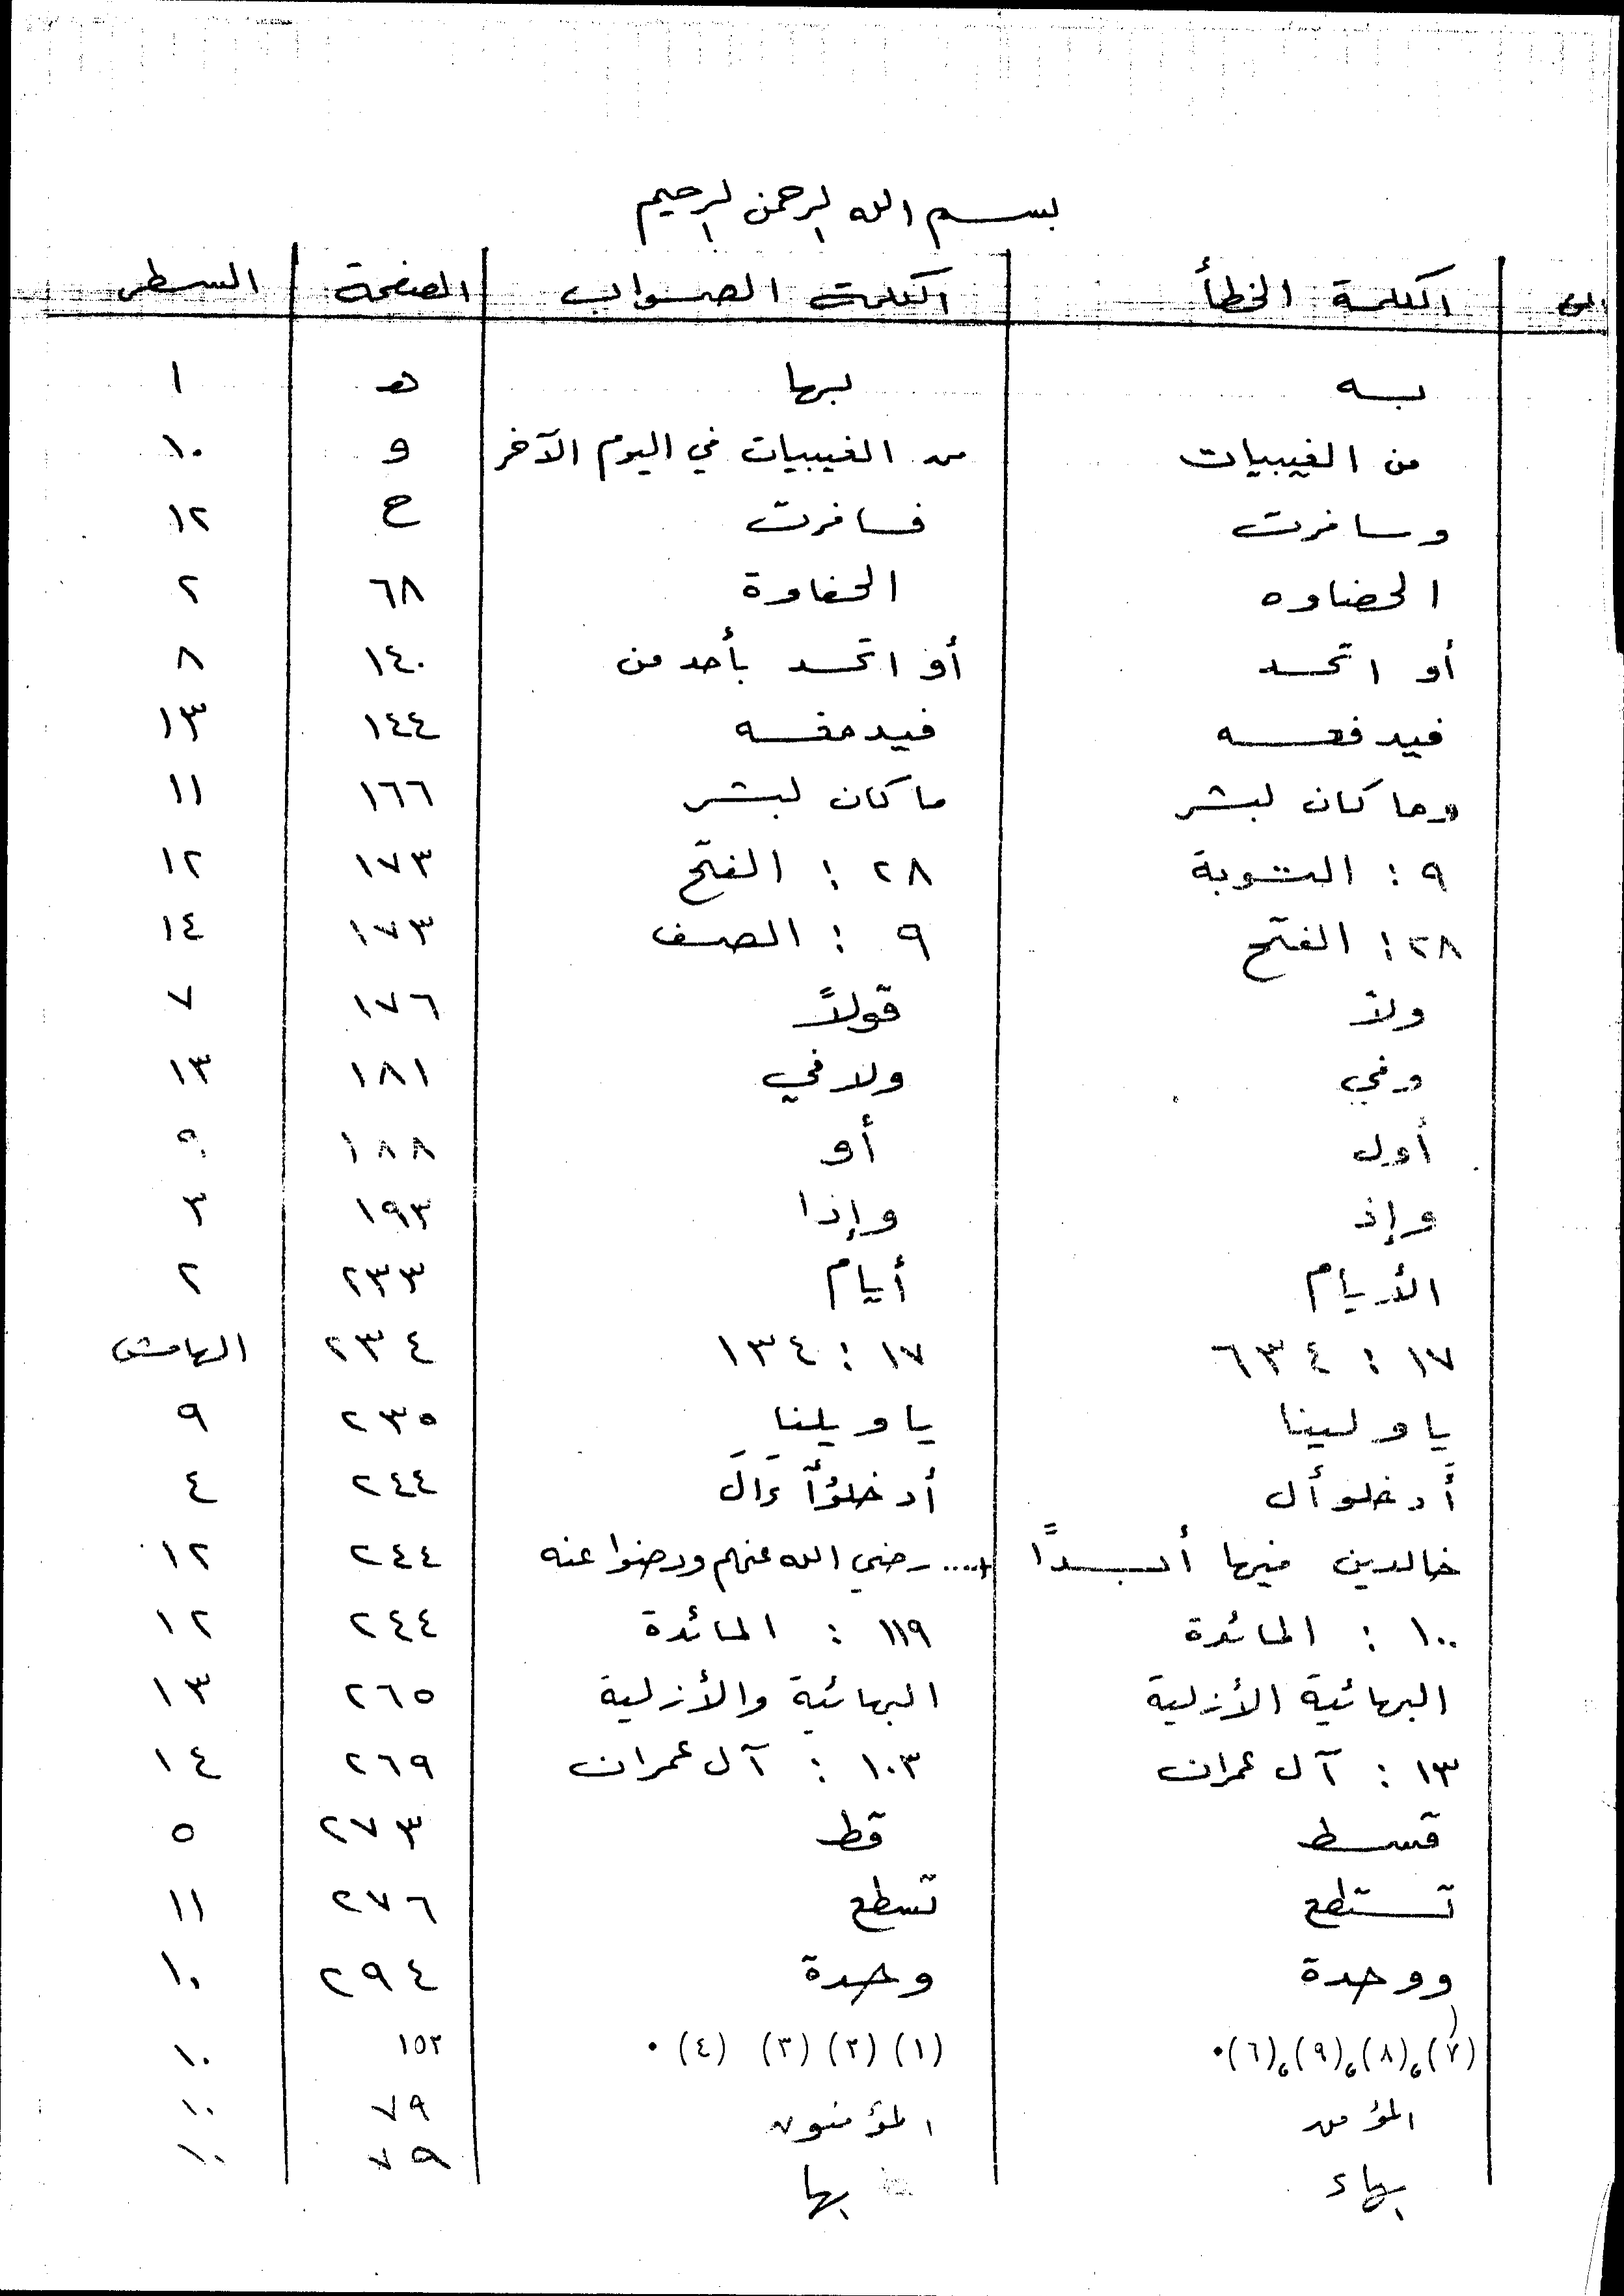 بسم الله الرحمن الرحيم
الكلمة الخطأ الكلمة الصواب الصفحة السطر
به بها هـ ١
من الغيبيات من الغيبيات في اليوم الآخر و ١٠
وسافرت فسافرت ح ١٢
الحضاوه الحفاوة ٦٨ ٢
أو اتحد أو اتحد بأحد من ١٤٠ ٨
فيدفعه فيدمغه ١٤٤ ١٣
وما كان لبشر ما كان لبشر ١٦٦ ١١
٩ : التوبة ٢٨ : الفتح ١٧٣ ١٢
٢٨ : الفتح ٩ : الصف ١٧٣ ١٤
ولاً قولاً ١٧٦ ٧
وفي ولا في ١٨١ ١٣
أول أو ١٨٨
وإذ وإذا ١٩٣ ٣
الأيام أيام ٢٣٣ ٢
١٧ : ٦٣٤ ١٧ : ١٣٤ ٢٣٤ الهامش
يا ولينا يا ويلنا ٢٣٥ ٩
أدخلوأل أدخلوُاْ ءَالَ ٢٤٤ ٤
خالدين فيها أبداً +.... رضي الله عنهم ورضوا عنه ٢٤٤ ١٢
١٠٠ : المائدة ١١٩ : المائدة ٢٤٤ ١٢
البهائية الأزلية البهائية والأزلية ٢٦٥ ١٣
١٣ : آل عمران ١٠٣ : آل عمران ٢٦٩ ١٤
قسط قط ٢٧٣ ٥
تستطع تسطع ٢٧٦ ١١
ووحدة وحدة ٢٩٤ ١٠
(٧)،(٨)،(٩)،(٦). (١) (٢) (٣) (٤). ١٥٢ ١٠
المؤمن المؤمنون ٧٩ ١٠
بهاء بها ٧٩ ١٠